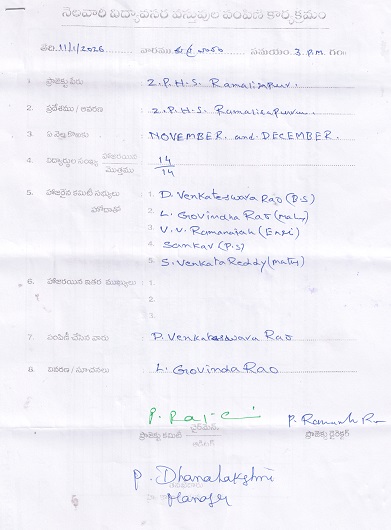 నెలవారీ విద్యావసర వస్తువుల పంపిణీ కార్యక్రమం
తేది. 11/1/2026 వారము సమయం 3 P.M. గంట
1. ప్రాజెక్టు పేరు : Z.P.H.S. Ramalingapur.
2. ప్రదేశము / ఆవరణ : Z.P.H.S. Ramalingapuram.
3. ఏ నెల కొరకు : NOVEMBER. and. DECEMBER.
4. విద్యార్థుల సంఖ్య హాజరయిన / మొత్తము : 14/14
5. హాజరైన కమిటీ సభ్యులు : 1. D. Venkateswara Rao (P.S)
హోదాతో 2. L. Govindha Rao (Maths)
3. V.V. Ramanaiah (Engi)
4. Sankar (P.S)
5. S. Venkata Reddy (Maths)
6. హాజరయిన ఇతర ముఖ్యులు : 1.
2.
3.
7. పంపిణీ చేసిన వారు : D. Venkateswara Rao
8. వివరణ / సూచనలు : L. Govinda Rao
P. Ramanah Rao
ప్రాజెక్టు కమిటీ చైర్‌మన్ ప్రాజెక్టు డైరెక్టర్
P. Dhanalakshmi
Manager